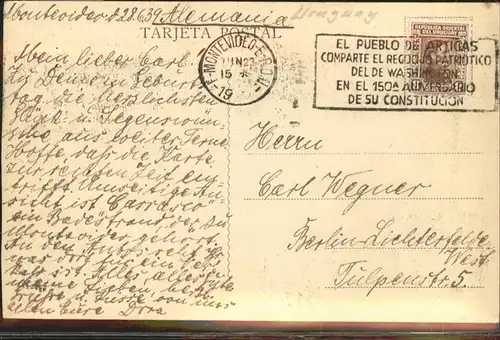 Montevideo d. 28.6.39 Alemania
Uruguay
TARJETA POSTAL
MONTEVIDEO
JUN 27
15
19
REPUBLICA ORIENTAL
DEL URUGUAY
EL PUEBLO DE ARTIGAS
COMPARTE EL REGOCIJO PATRIOTICO
DEL DE WASHINGTON
EN EL 150º ANIVERSARIO
DE SU CONSTITUCION
Mein lieber Carl
Zu Deinem Geburts-
tag die herzlichsten
Glück- u. Segenswün-
sche aus weiter Ferne
Hoffe, daß die Karte
zur rechten Zeit ein-
trifft. Umseitige An-
sicht ist Carrasco
ein Badestrand, der zu
Montevideo gehört.
An der
was dort für ein
ist. Alles
meine Lieben,
Grüße u. Küsse von uns
allen Eure Dora
Herrn
Carl Wegner
Berlin-Lichterfelde
West.
Tulpenstr. 5.